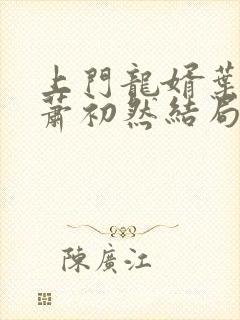 上門龍婿葉
蕭初然結局
陳廣江